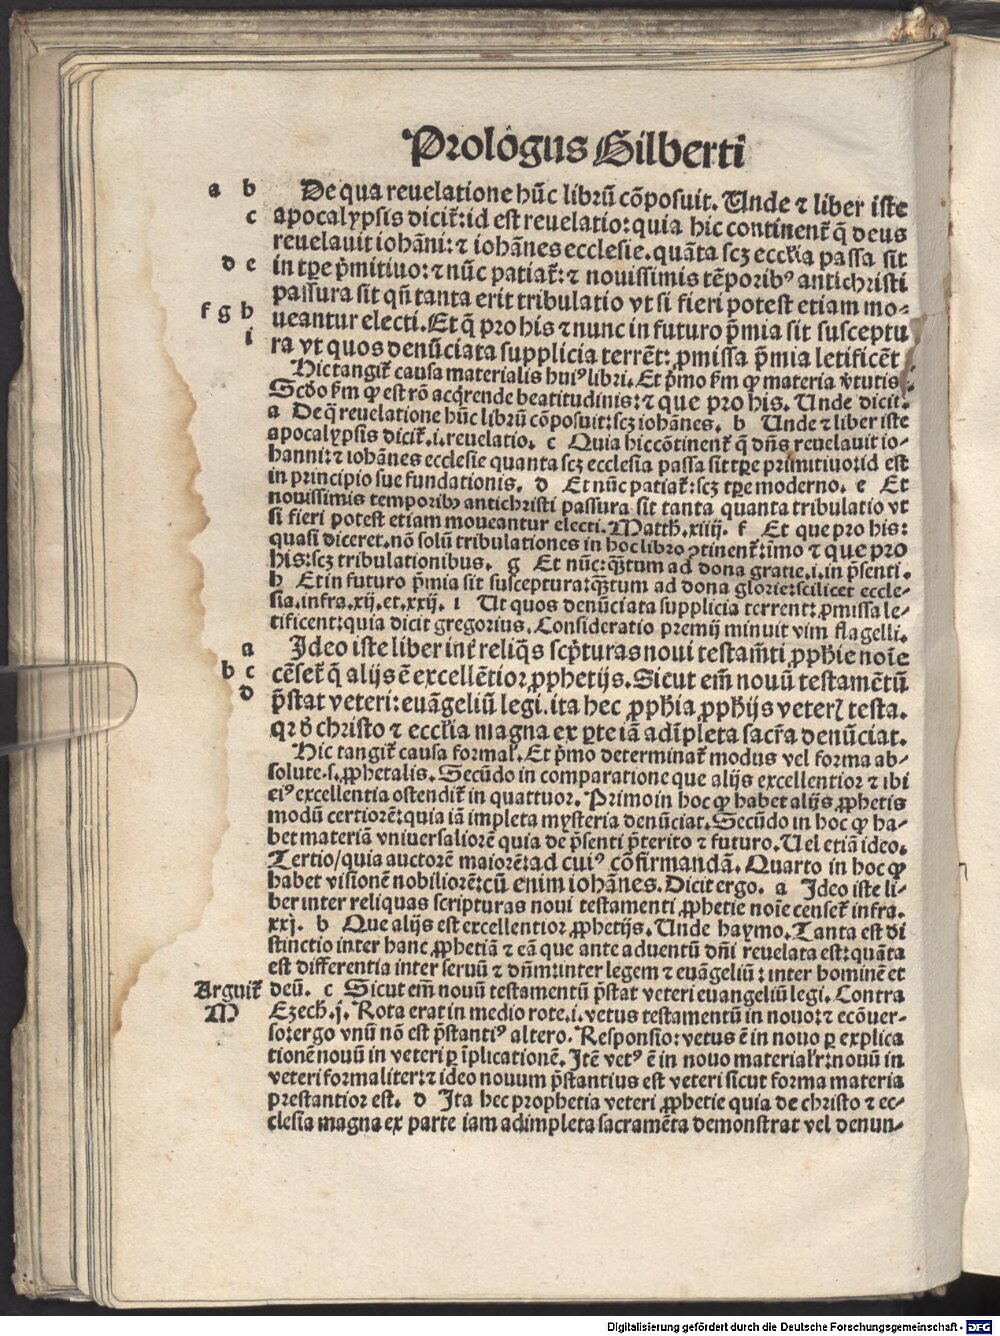 Prologus Gilberti
a b De qua reuelatione hūc librū cōposuit. Unde ⁊ liber iste
c apocalypsis dicit̄: id est reuelatio: quia hic continent̄ q̄ deus
reuelauit iohāni: ⁊ iohānes ecclesie. quāta scꝫ eccl̄ia passa sit
d e in tp̄e p̄mitiuo: ⁊ nūc patiat̄: ⁊ nouissimis tēporibꝰ antichristi
passura sit qn̄ tanta erit tribulatio vt si fieri potest etiam mo-
f g h ueantur electi. Et q̄ pro his ⁊ nunc in futuro p̄mia sit susceptu
i ra vt quos denūciata supplicia terrēt: ꝓmissa p̄mia letificēt
Hic tangit̄ causa materialis huiꝰ libri. Et p̄mo ẜm ꝙ materia v̄tutis.
Scd̄o ẜm ꝙ est rō acq̄rende beatitudinis: ⁊ que pro his. Unde dicit.
a De q̄ reuelatione hūc librū cōposuit: scꝫ iohānes. b Unde ⁊ liber iste
apocalypsis dicit̄. i. reuelatio. c Quia hic cōtinent̄ q̄ dn̄s reuelauit io-
hanni: ⁊ iohānes ecclesie quanta scꝫ ecclesia passa sit tp̄e primitiuo: id est
in principio sue fundationis. d Et nūc patiat̄: scꝫ tp̄e moderno. e Et
nouissimis temporibꝰ antichristi passura sit tanta quanta tribulatio vt
si fieri potest etiam moueantur electi. Matth. xiiij. f Et que pro his:
quasi diceret. nō solū tribulationes in hoc libro ꝯtinent̄: īmo ⁊ que pro
his: scꝫ tribulationibus. g Et nūc: qȝtum ad dona gratie. i. in p̄senti.
h Et in futuro p̄mia sit susceptura: qȝtum ad dona glorie: scilicet eccle-
sia. infra. xij. et. xxij. i Ut quos denūciata supplicia terrent: ꝓmissa le-
tificent: quia dicit gregorius. Consideratio premij minuit vim flagelli.
a Ideo iste liber int̄ reliq̄s scp̄turas noui testam̄ti ꝓph̄ie noīe
b c cēset̄ q̄ alijs ē excellētior ꝓphetijs. Sicut em̄ nouū testamētū
d p̄stat veteri: euāgeliū legi. ita hec ꝓph̄ia ꝓph̄ijs veterꝭ testa.
qr d̄ christo ⁊ eccl̄ia magna ex ꝑte iā adīpleta sacr̄a denūciat.
Hic tangit̄ causa formal̄. Et p̄mo determinat̄ modus vel forma ab-
solute. s. ꝓphetalis. Secūdo in comparatione que alijs excellentior ⁊ ibi
eiꝰ excellentia ostendit̄ in quattuor. Primo in hoc ꝙ habet alijs ꝓphetis
modū certiorē: quia iā impleta mysteria denūciat. Secūdo in hoc ꝙ ha-
bet materiā vniuersaliorē quia de p̄senti p̄terito ⁊ futuro. Uel etiā ideo.
Tertio/ quia auctorē maiorē: ad cuiꝰ cōfirmandā. Quarto in hoc ꝙ
habet visionē nobiliorē: cū enim iohānes. Dicit ergo. a Ideo iste li-
ber inter reliquas scripturas noui testamenti ꝓphetie noīe censet̄ infra.
xxj. b Que alijs est excellentior ꝓphetijs. Unde haymo. Tanta est di
stinctio inter hanc ꝓphetiā ⁊ eā que ante aduentū dn̄i reuelata est: quāta
est differentia inter seruū ⁊ dn̄m: inter legem ⁊ euāgeliū: inter hominē et
Arguit̄ deū. c Sicut em̄ nouū testamentū p̄stat veteri euangeliū legi. Contra
M Ezech. j. Rota erat in medio rote. i. vetus testamentū in nouo: ⁊ ecōuer-
so: ergo vnū nō est p̄stantiꝰ altero. Responsio: vetus ē in nouo ꝑ explica
tionē nouū in veteri ꝑ īplicationē. Itē vetꝰ ē in nouo material̄r: nouū in
veteri formaliter: ⁊ ideo nouum p̄stantius est veteri sicut forma materia
prestantior est. d Ita hec prophetia veteri ꝓphetie quia de christo ⁊ ec-
clesia magna ex parte iam adimpleta sacramēta demonstrat vel denun-
Digitalisierung gefördert durch die Deutsche Forschungsgemeinschaft - DFG